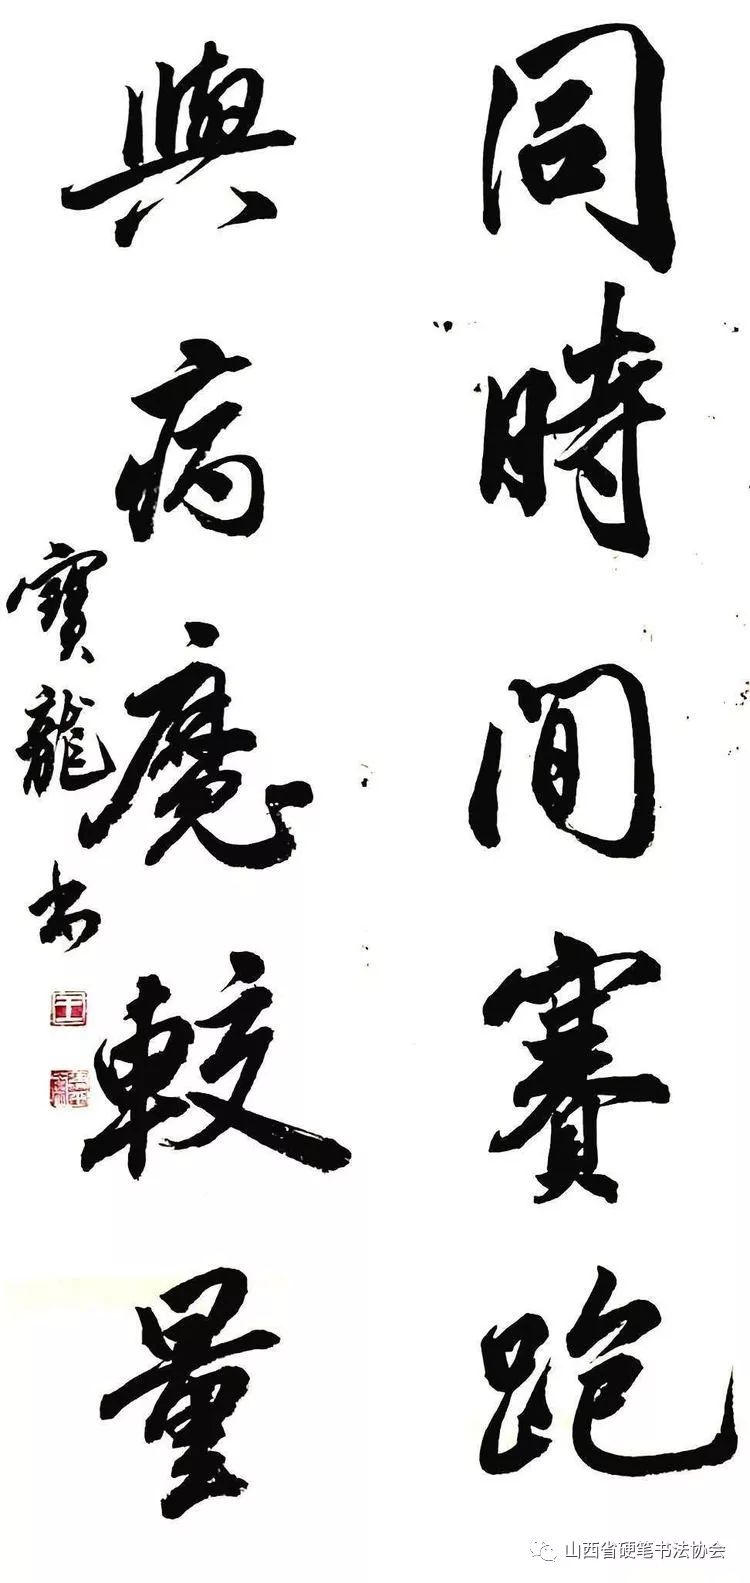 同時間賽跑
與病魔較量
寶龍书
王
山西省硬笔书法协会